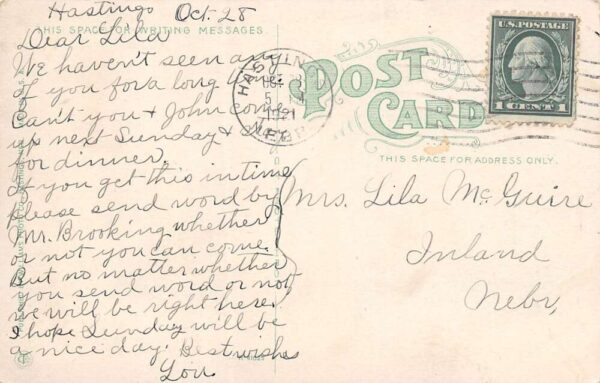 Hastings Oct. 28
THIS SPACE FOR WRITING MESSAGES
Dear Lila
We haven't seen any
of you for a long time.
Can't you & John come
up next Sunday &
for dinner.
If you get this in time
please send word by
Mr. Brooking whether
or not you can come.
But no matter whether
you send word or not
we will be right here.
I hope Sunday will be
a nice day. Best wishes
Lou
HASTINGS
OCT
5
1921
NEBR.
POST
CARD
THIS SPACE FOR ADDRESS ONLY.
U.S. POSTAGE
1 CENT 1
Mrs. Lila McGuire
Inland
Nebr,